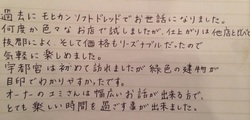 過去にモヒカンソフトドレッドでお世話になりました。
何度か色々なお店で試しましたが、仕上がりは他店と比べ
抜群によく、そして価格もリーズナブルだったので
気軽に楽しめました。
宇都宮は初めて訪れましたが緑色の建物が
目印でわかりやすかったです。
オーナーのエミさんは幅広いお話が出来る方で、
とても楽しい時間を過ごす事が出来ました。